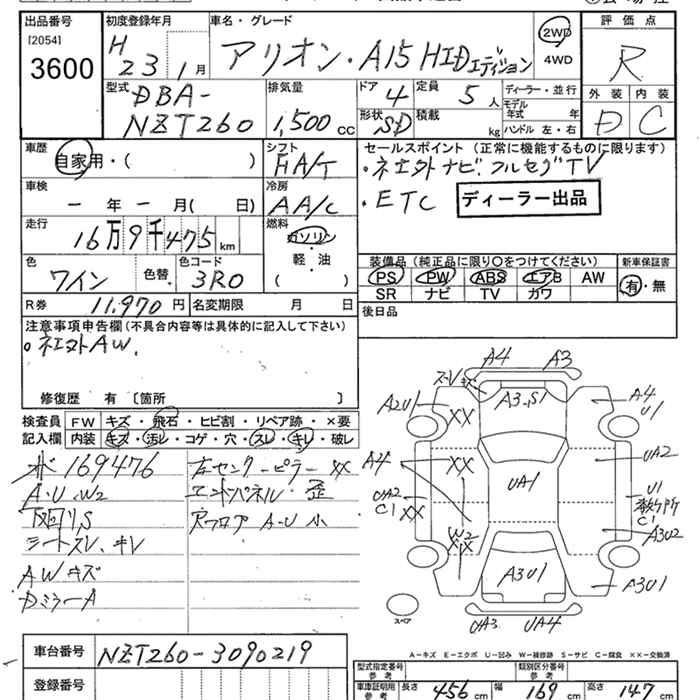 出品番号 初度登録年月 車名・グレード 評価点
[2054] H 23 1月 アリオン・A15 HIDエディション 2WD 4WD R
3600 外装 内装
型式 排気量 ドア 定員 ディーラー・並行
DBA- 4 5人 モデル年式 年 D C
NZT260 1,500cc 形状 積載 ハンドル 左・右
SD kg
車歴 シフト セールスポイント(正常に機能するものに限ります)
自家用・( ) FA/T ・ネエットナビ.フルセグTV
車検 冷房 ・ETC ディーラー出品
ー年ー月( 日) AA/C
走行 燃料
16万9千475km ガソリン・軽油 ( )
装備品(純正品に限り〇をつけてください) 新車保証書
色 色替 色コード PS PW ABS エアB AW 有・無
ワイン 3R0 SR ナビ TV カワ
R券 11,970円 名変期限 月 日 後日品
注意事項申告欄(不具合内容等は具体的に記入して下さい)
。ネエットAW.
修復歴 有〔箇所 〕
検査員 FW キズ・飛石・ヒビ割・リペア跡・×要
記入欄 内装 キズ・汚レ・コゲ・穴・スレ・キレ・破レ
169476 左センターピラー XX
A・U.W2 エンドパネル・歪
下回りS フロア A-U 小
シートスレ、キレ
AWキズ
DミラーA
A4 A3
A2U1 XX A3.S1 A4 U1
A4 XX UA2
UA2 UA1 U1
C1 XX C1
W2 XX A3U2
A3U1 A3U1
スペア UA3 UA4
A-キズ E-エクボ U-凹み W-補修跡 S-サビ C-腐食 XX-交換済
車台番号 NZT260-3090219
登録番号
型式指定番号 参考 類別区分番号 参考
車庫証明用 参考 長さ 456cm 幅 169cm 高さ 147cm